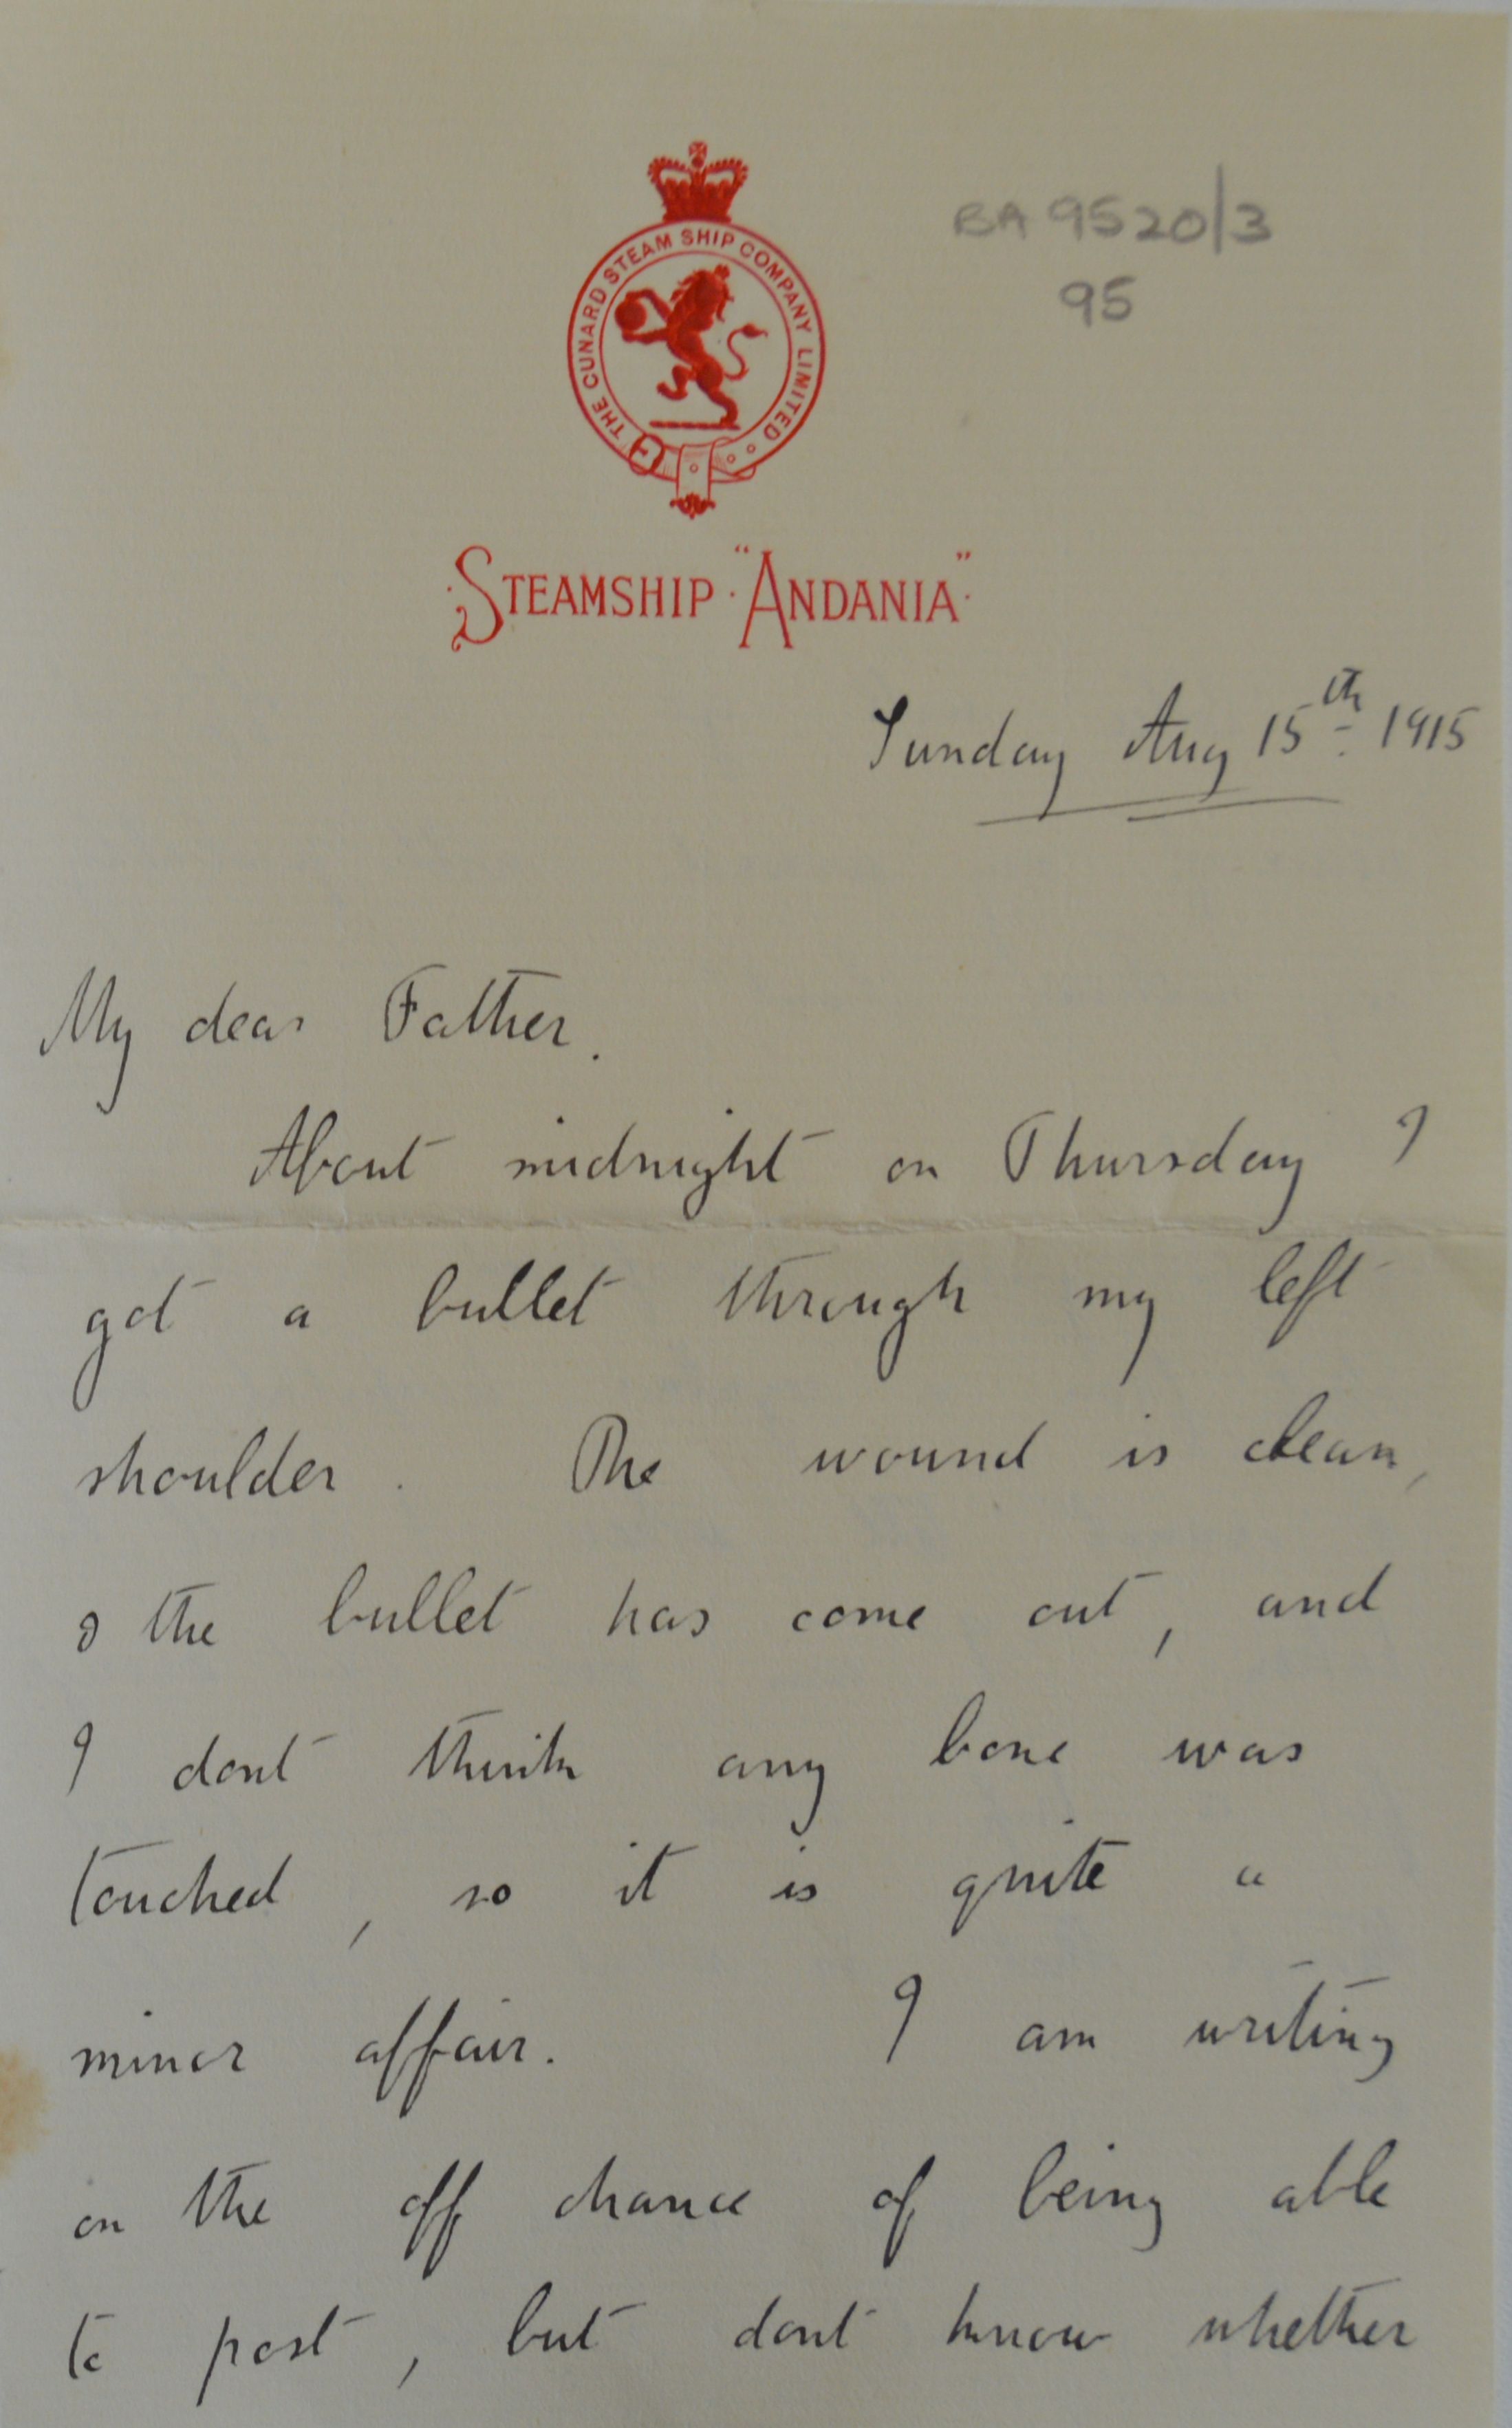 BA 9520/3
95
THE CUNARD STEAM SHIP COMPANY LIMITED
STEAMSHIP "ANDANIA"
Sunday Aug 15th 1915
My dear Father.
About midnight on Thursday I
got a bullet through my left
shoulder. The wound is clean,
& the bullet has come out, and
I dont think any bone was
touched, so it is quite a
minor affair. I am writing
on the off chance of being able
to post, but dont know whether